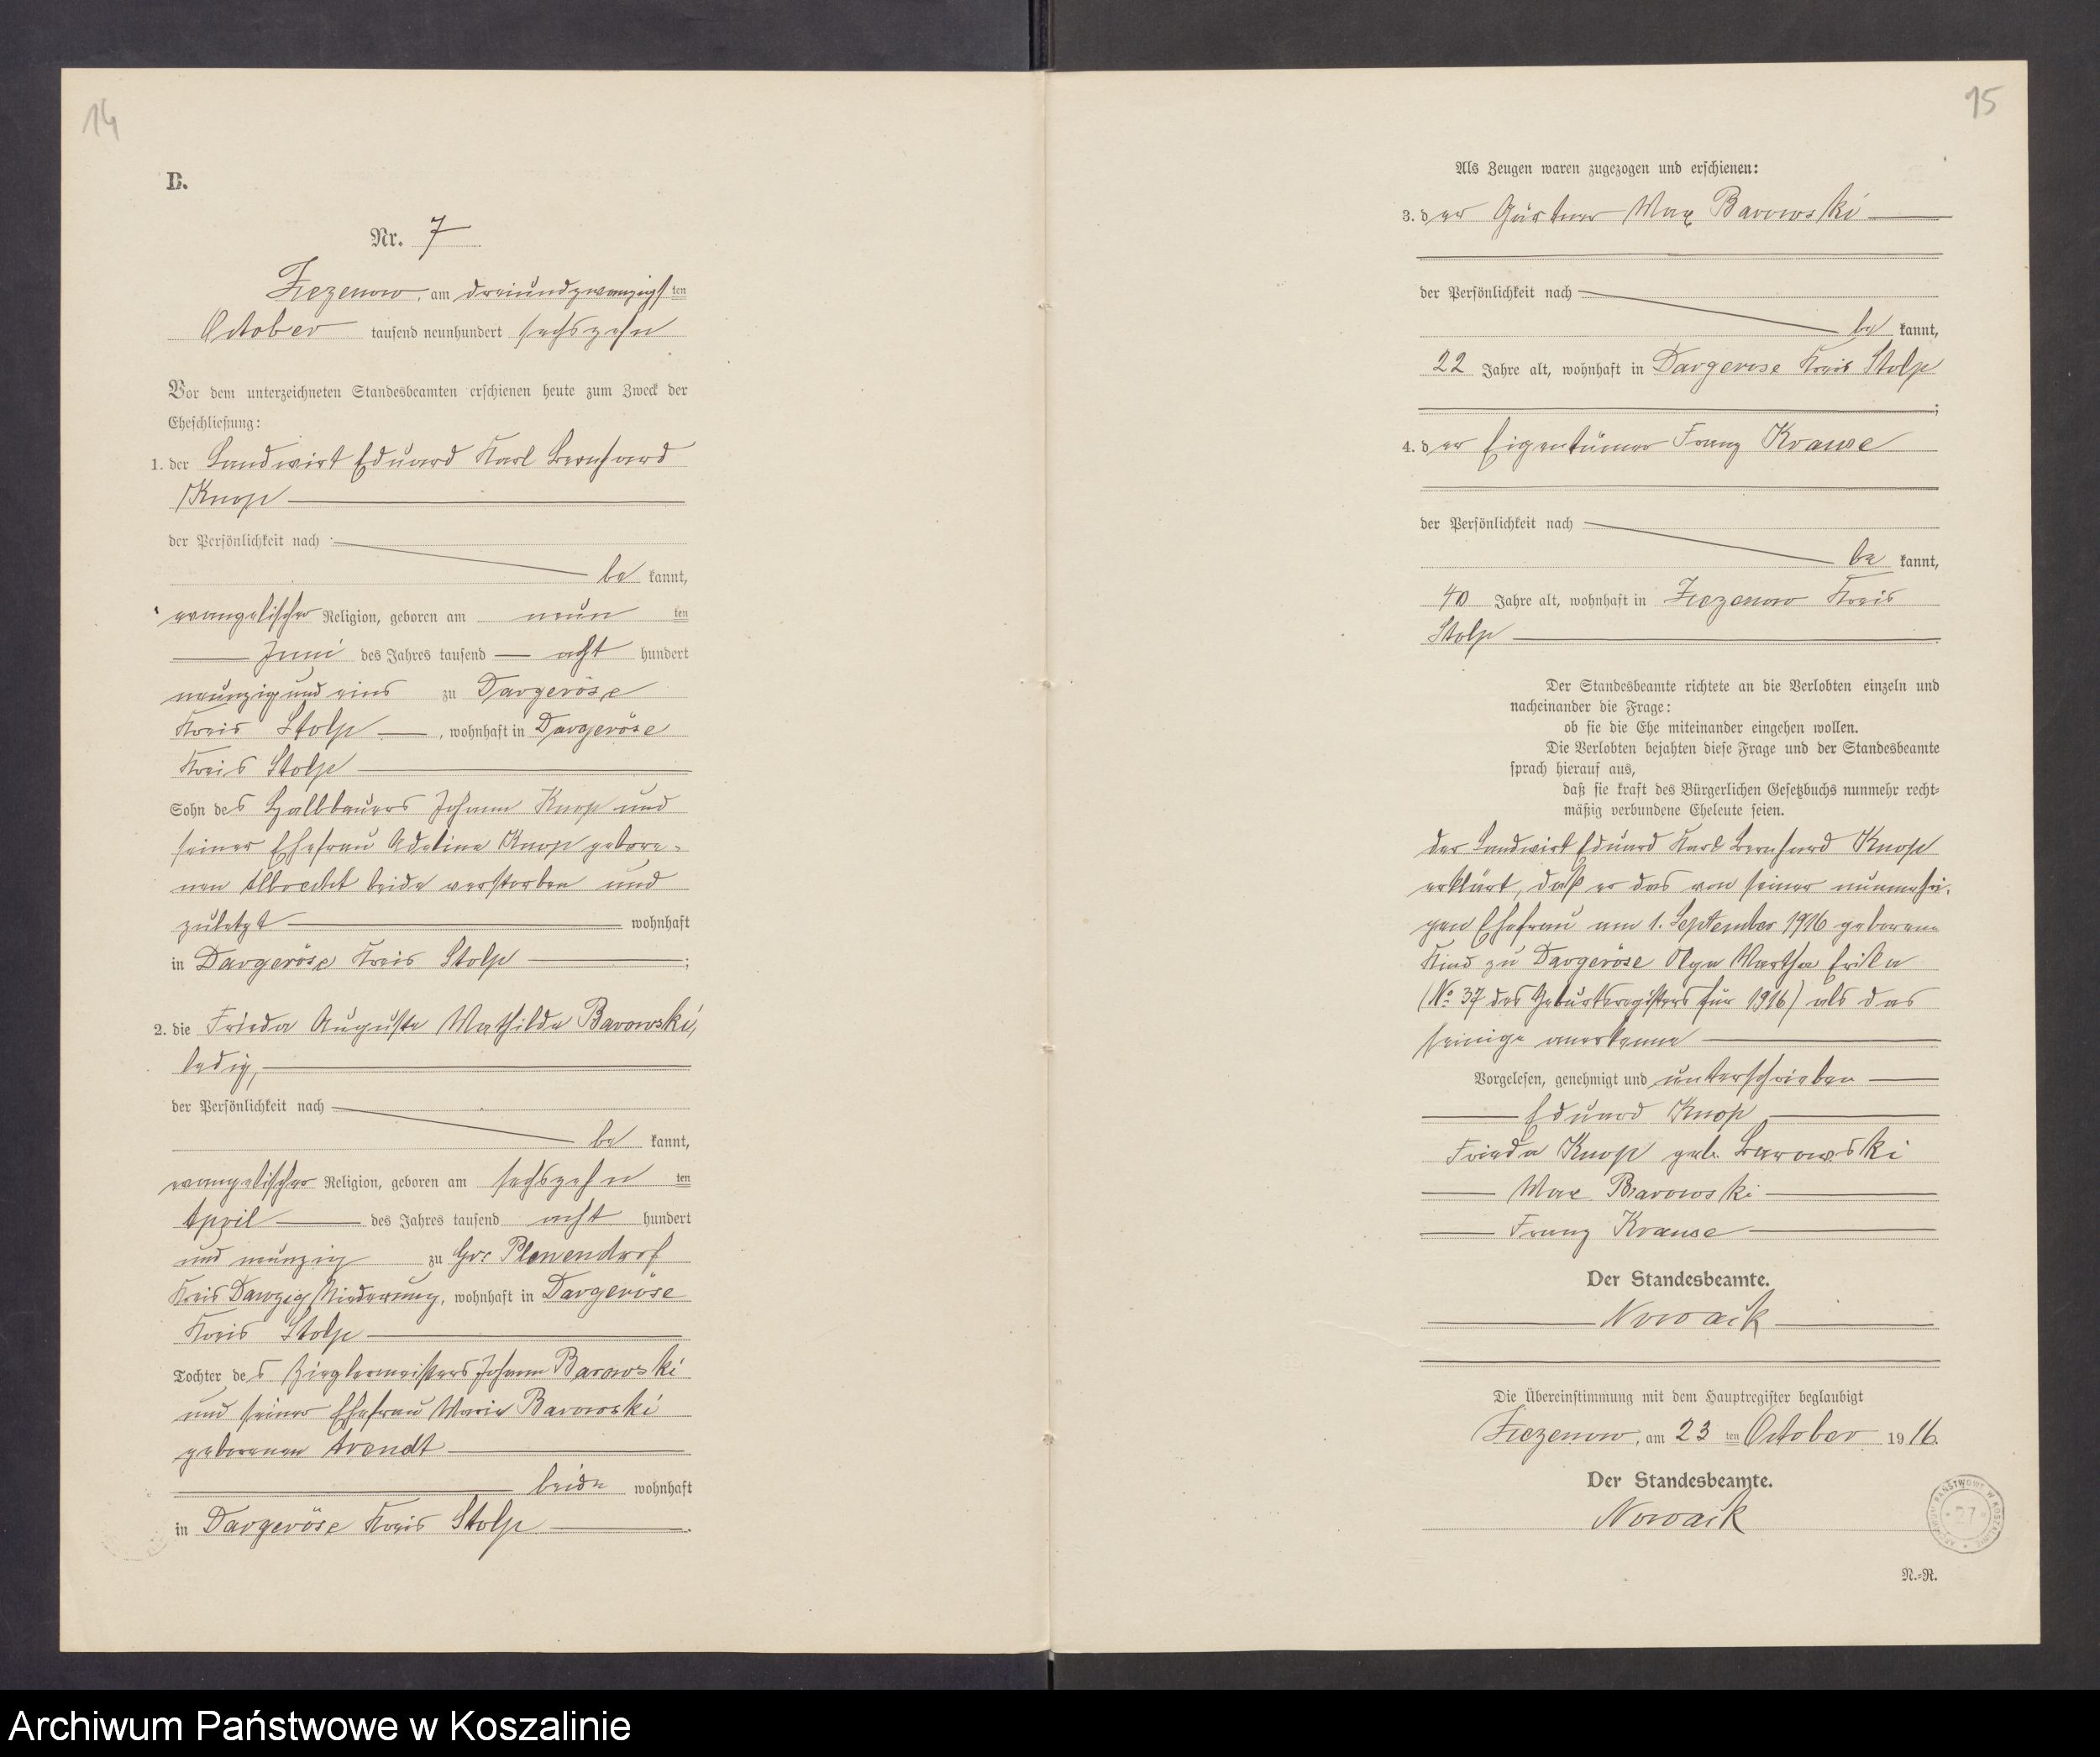 14
B.
Nr. 7
Zezenow, am dreiundzwanzigsten
October tausend neunhundert sechszehn
Vor dem unterzeichneten Standesbeamten erschienen heute zum Zweck der
Eheschließung:
1. der Landwirt Eduard Karl Bernhard
Knop
der Persönlichkeit nach
be kannt,
evangelischer Religion, geboren am neun ten
Juni des Jahres tausend acht hundert
neunzig und eins zu Dargeröse
Kreis Stolp, wohnhaft in Dargeröse
Kreis Stolp
Sohn des Halbbauers Johann Knop und
seiner Ehefrau Adeline Knop gebore-
nen Albrecht beide verstorben und
zuletzt wohnhaft
in Dargeröse Kreis Stolp ;
2. die Frieda Auguste Mathilde Barowski,
ledig,
der Persönlichkeit nach
be kannt,
evangelischer Religion, geboren am sechszehn ten
April des Jahres tausend acht hundert
und neunzig zu Plenendorf
Kreis Danzig Niederung, wohnhaft in Dargeröse
Kreis Stolp
Tochter des Zieglermeisters Johann Barowski
und seiner Ehefrau Maria Barowski
geborenen Arendt
beide wohnhaft
in Dargeröse Kreis Stolp .
15
Als Zeugen waren zugezogen und erschienen:
3. der Gärtner Max Barowski
der Persönlichkeit nach
be kannt,
22 Jahre alt, wohnhaft in Dargerose Kreis Stolp
;
4. der Eigentümer Franz Krause
der Persönlichkeit nach
be kannt,
40 Jahre alt, wohnhaft in Zezenow Kreis
Stolp
Der Standesbeamte richtete an die Verlobten einzeln und
nacheinander die Frage:
ob sie die Ehe miteinander eingehen wollen.
Die Verlobten bejahten diese Frage und der Standesbeamte
sprach hierauf aus,
daß sie kraft des Bürgerlichen Gesetzbuchs nunmehr recht-
mäßig verbundene Eheleute seien.
der Landwirt Eduard Karl Bernhard Knop
erklärt, daß er das von seiner nunmehri-
gen Ehefrau am 1. September 1916 geborene
Kind zu Dargeröse Olga Martha
(No 37 des Geburtsregisters für 1916) als das
seinige anerkenne
Vorgelesen, genehmigt und unterschrieben
Eduard Knop
Frieda Knop geb. Barowski
Max Barowski
Franz Krause
Der Standesbeamte.
Nowack
Die Übereinstimmung mit dem Hauptregister beglaubigt
Zezenow, am 23 ten October 1916.
Der Standesbeamte.
Nowack
ARCHIWUM PAŃSTWOWE W KOSZALINIE
27
N.-R.
Archiwum Państwowe w Koszalinie